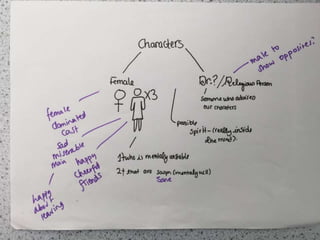 Characters
male to
show opposites?
Female
x3
Dr.?//Religious Person
Someone who advices
our characters
possible
Spirit - (really inside
the mind)
female
dominated
cast
sad
miserable
main
happy
cheerful
friends
happy
about
leaving
1 who is mentally unstable
2+ that are
(mentally ill)
Sane